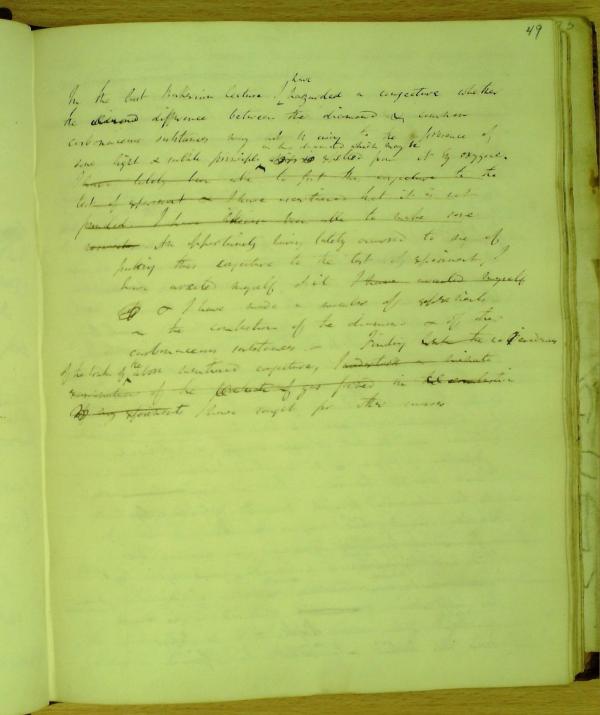 49
have
In the last Bakerian lecture I hazarded a conjecture whether
the difference between the diamond & common
carbonaceous substances may not be owing to the presence of
in the diamond which may be
some light & subtle principle expelled from it by oxygene.
I have lately been able to put this conjecture to the
test of experiment & I have ascertained that it is not
I have likewise been able to make some
An opportunity having lately occurred to me of
putting this conjecture to the test of experiment, I
have availed myself of it I have availed myself
& I have made a number of experiments
on the combustion of the diamond & of other
carbonaceous substances - Finding
of the truth of the above mentioned conjecture, I undertook a minute
examination of the gas formed in combustion
my experiments I have sought for other causes